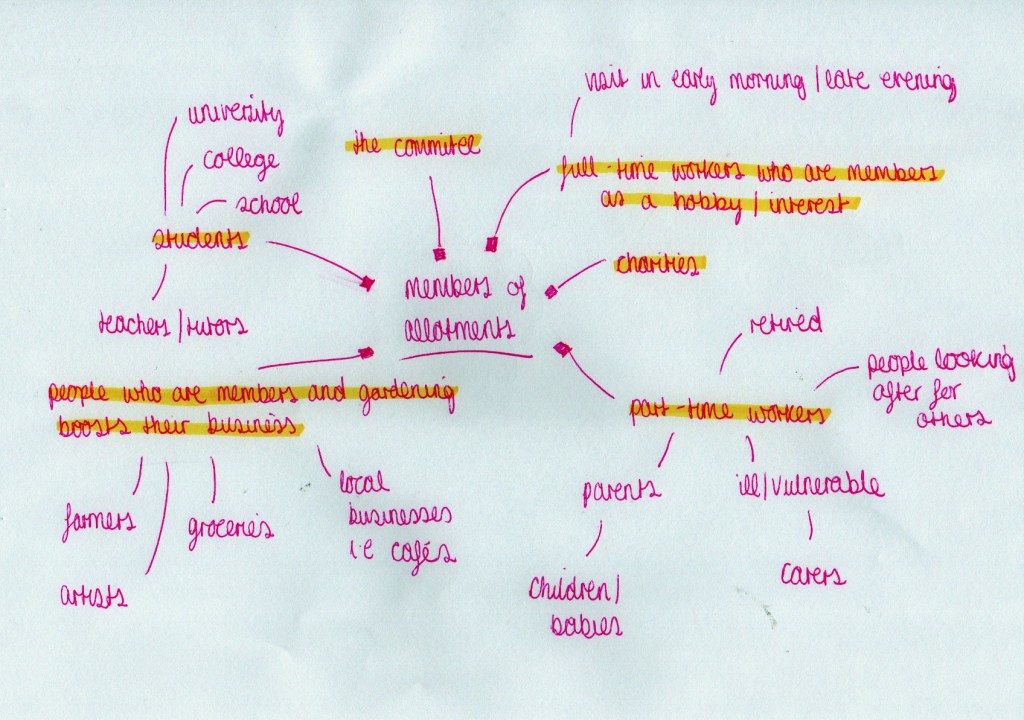 visit in early morning / late evening
university
the commitee
college
full-time workers who are members
as a hobby / interest
school
students
charities
members of
allotments
teachers / tutors
retired
people looking
after for
others
people who are members and gardening
boosts their business
part-time workers
local
businesses
i.e cafés
parents
ill/vulnerable
farmers
groceries
artists
carers
children/
babies